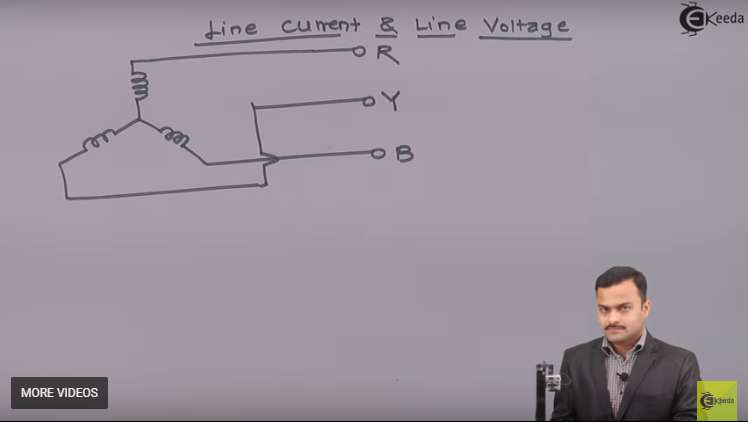 Line Current & Line Voltage
Ekeeda
R
Y
B
MORE VIDEOS
Ekeeda